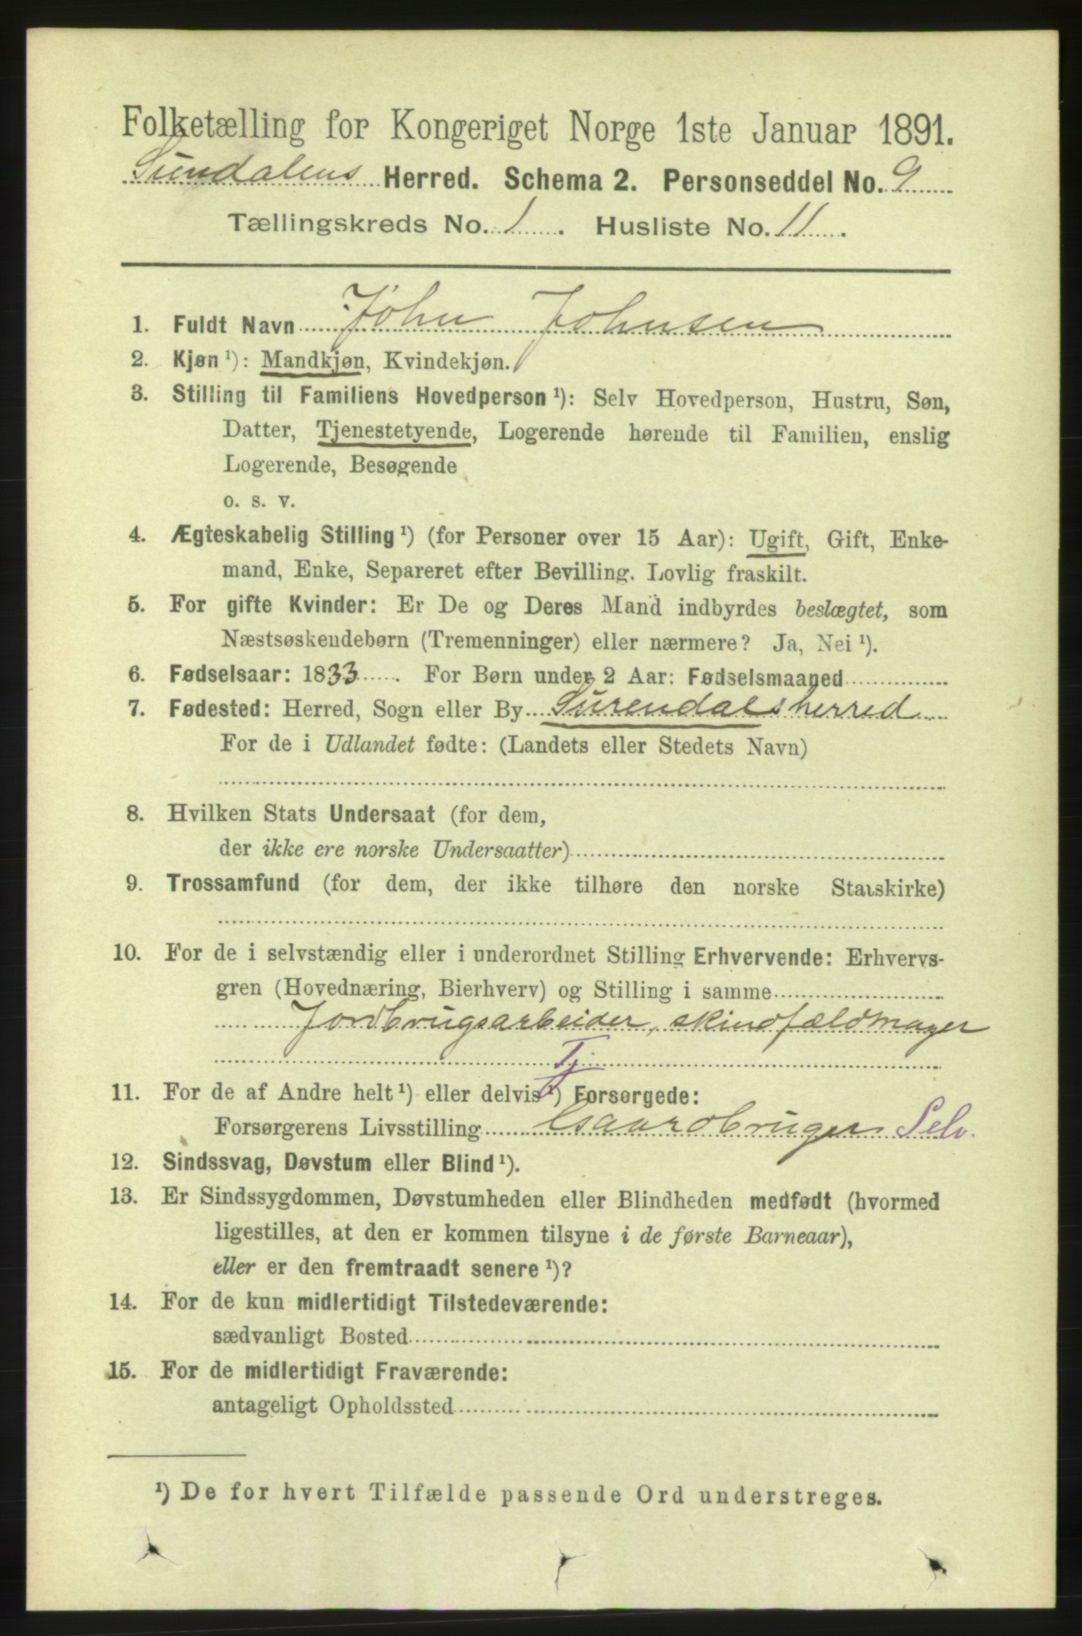 Folketælling for Kongeriget Norge 1ste Januar 1891.
Sundalens Herred. Schema 2. Personseddel No. 9
Tællingskreds No. 1. Husliste No. 11.
1. Fuldt Navn John Johnsen
2. Kjøn ¹): Mandkjøn, Kvindekjøn.
3. Stilling til Familiens Hovedperson ¹): Selv Hovedperson, Hustru, Søn,
Datter, Tjenestetyende, Logerende hørende til Familien, enslig
Logerende, Besøgende
o. s. v.
4. Ægteskabelig Stilling ¹) (for Personer over 15 Aar): Ugift, Gift, Enke-
mand, Enke, Separeret efter Bevilling. Lovlig fraskilt.
5. For gifte Kvinder: Er De og Deres Mand indbyrdes beslægtet, som
Næstsøskendebørn (Tremenninger) eller nærmere? Ja, Nei ¹).
6. Fødselsaar: 1833. For Børn under 2 Aar: Fødselsmaaned
7. Fødested: Herred, Sogn eller By Surendalsherred
For de i Udlandet fødte: (Landets eller Stedets Navn)
8. Hvilken Stats Undersaat (for dem,
der ikke ere norske Undersaatter)
9. Trossamfund (for dem, der ikke tilhøre den norske Statskirke)
10. For de i selvstændig eller i underordnet Stilling Erhvervende: Erhvervs-
gren (Hovednæring, Bierhverv) og Stilling i samme
Jordbrugsarbeider, skindfældmager
Tj.
11. For de af Andre helt ¹) eller delvis ¹) Forsørgede:
Forsørgerens Livsstilling Gaardbruger Selv.
12. Sindssvag, Døvstum eller Blind ¹).
13. Er Sindssygdommen, Døvstumheden eller Blindheden medfødt (hvormed
ligestilles, at den er kommen tilsyne i de første Barneaar),
eller er den fremtraadt senere ¹)?
14. For de kun midlertidigt Tilstedeværende:
sædvanligt Bosted
15. For de midlertidigt Fraværende:
antageligt Opholdssted
¹) De for hvert Tilfælde passende Ord understreges.